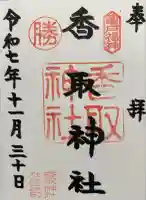 奉拝
香取神社
勝
香取神社
令和七年十一月三十日